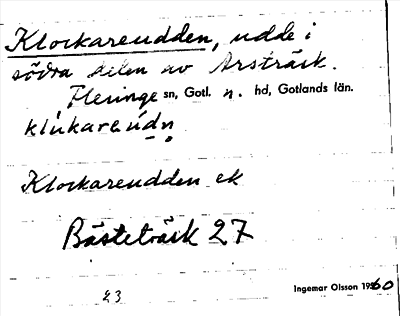 Klockareudden, udde i
södra delen av Årsträsk.
Fleringe sn, Gotl. n. hd, Gotlands län.
klùkareúdn
Klockareudden ek
Bästeträsk 27
Ingemar Olsson 1960
23